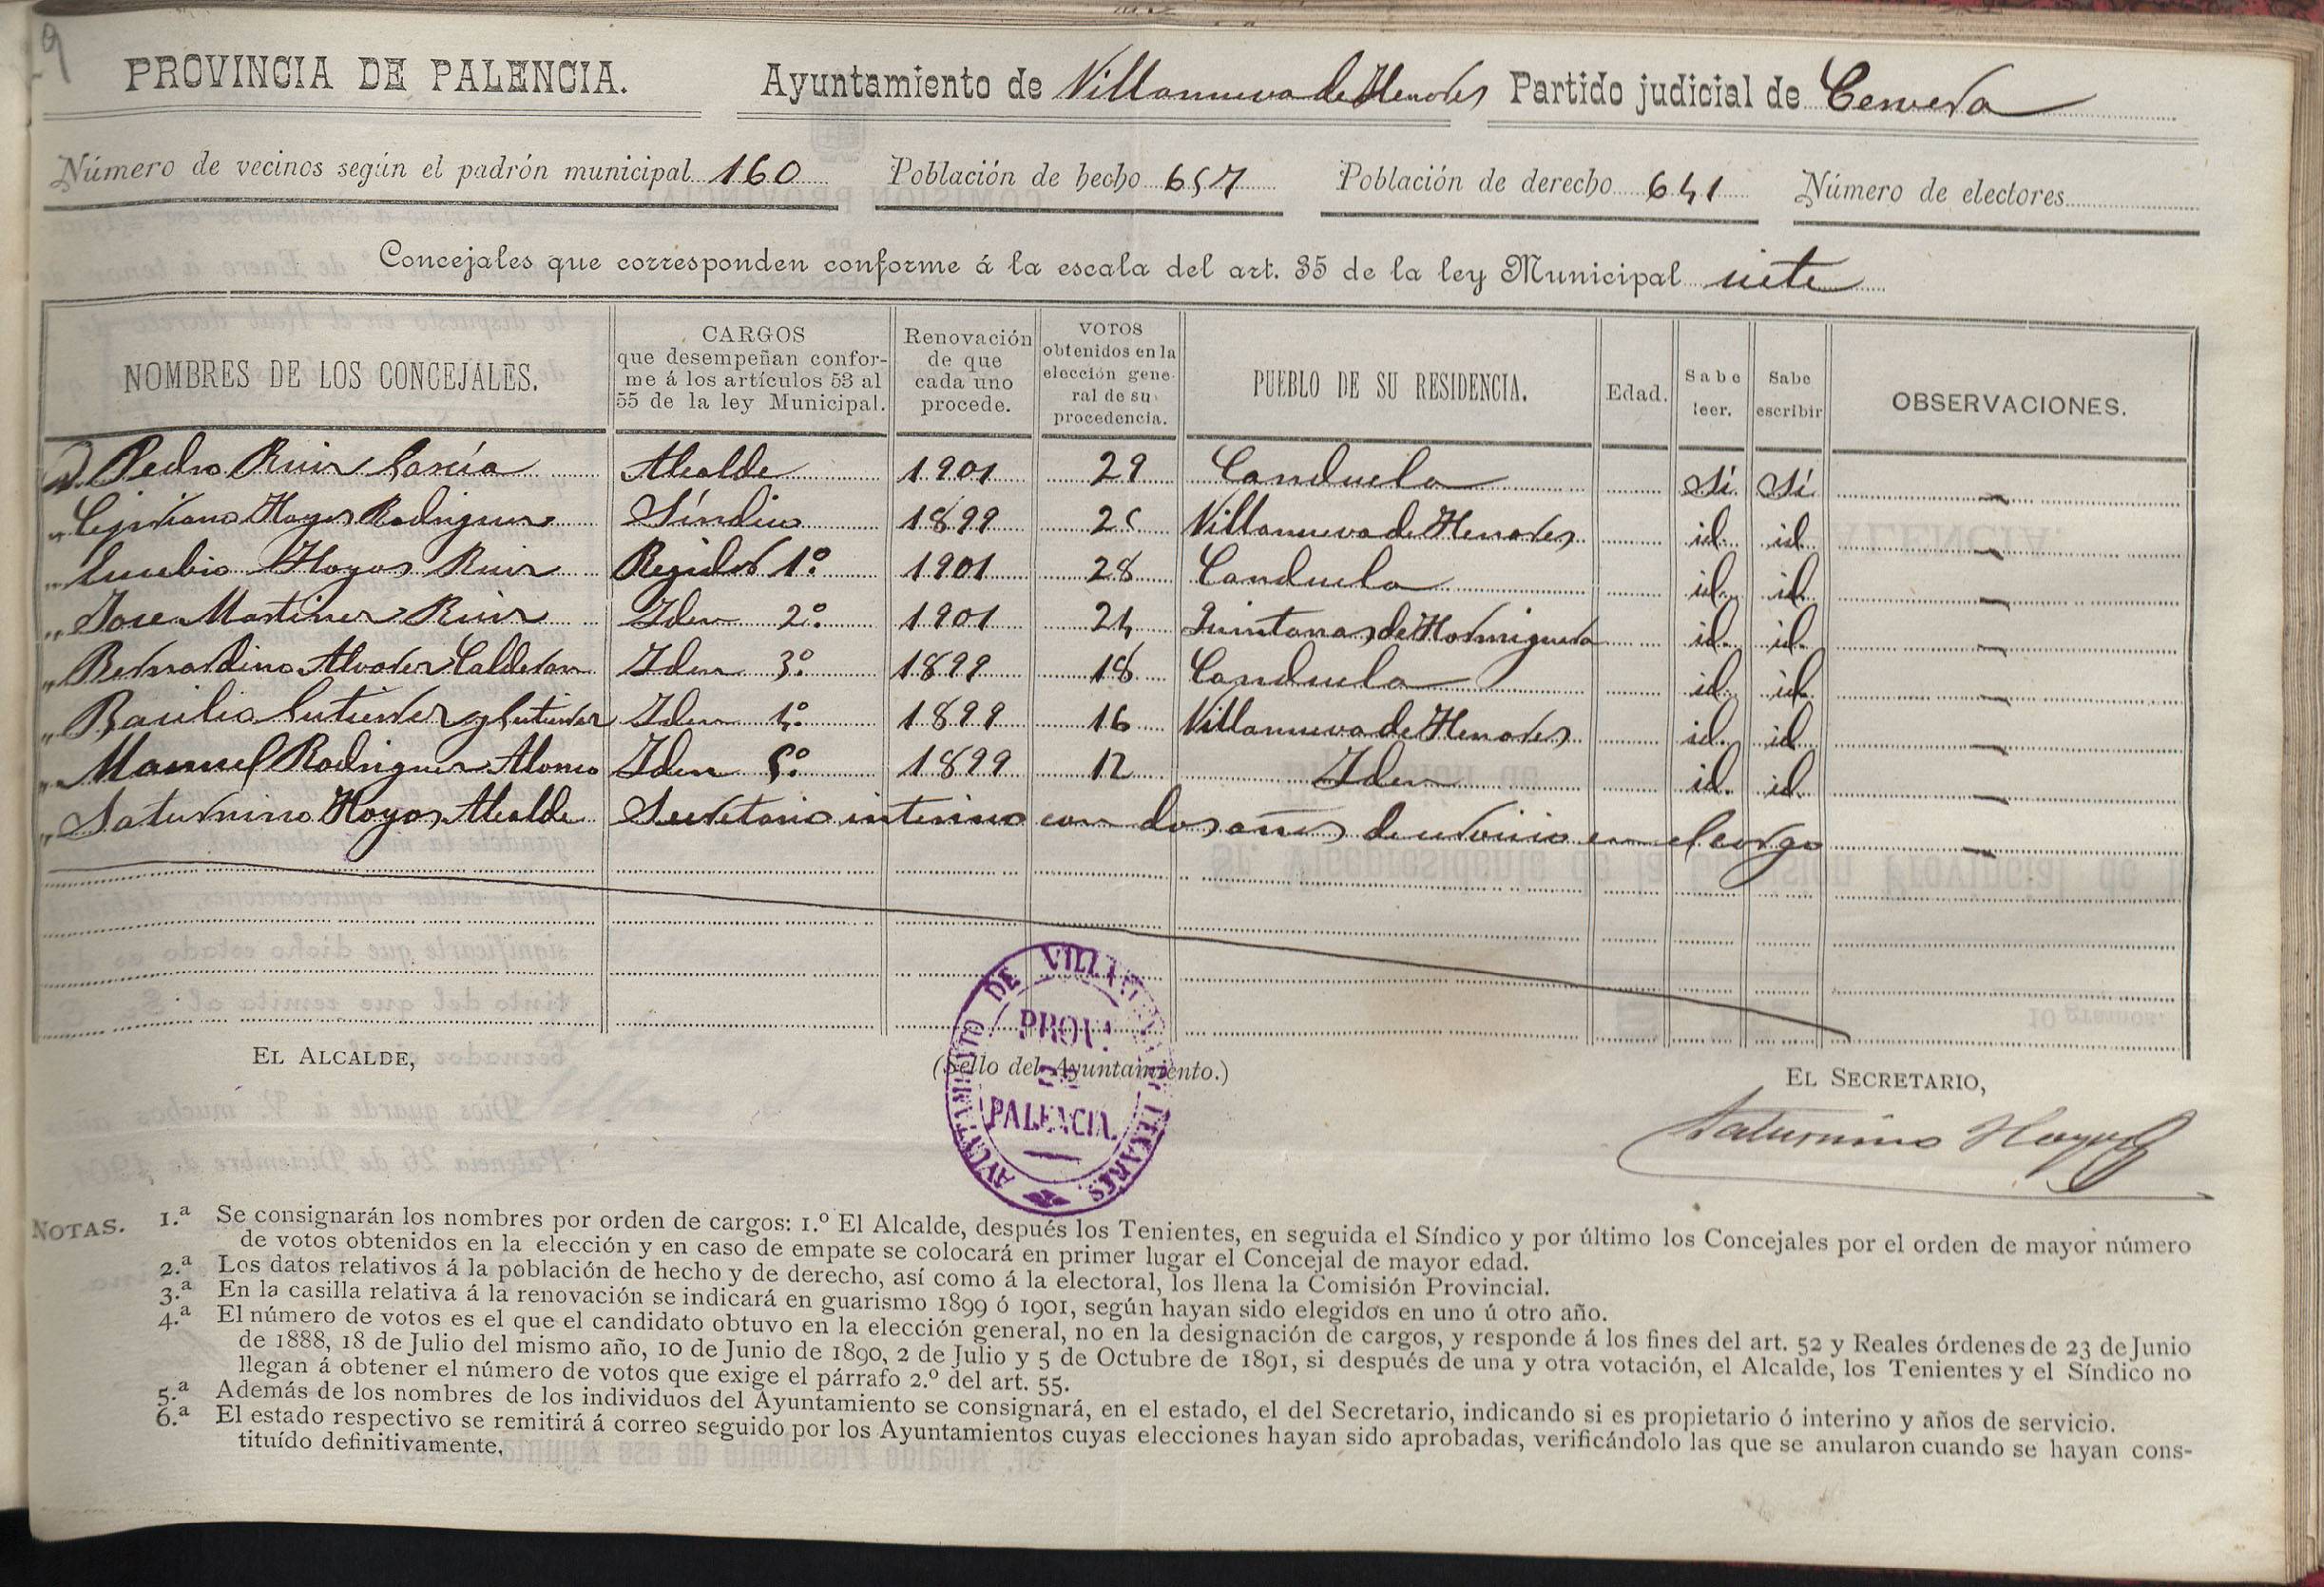 PROVINCIA DE PALENCIA. Ayuntamiento de Villanueva de Henares Partido judicial de Cervera
Número de vecinos según el padrón municipal 160 Población de hecho 657 Población de derecho 641 Número de electores
Concejales que corresponden conforme á la escala del art. 35 de la ley Municipal siete
NOMBRES DE LOS CONCEJALES.
CARGOS
que desempeñan confor-
me á los artículos 53 al
55 de la ley Municipal.
Renovación
de que
cada uno
procede.
VOTOS
obtenidos en la
elección gene-
ral de su
procedencia.
PUEBLO DE SU RESIDENCIA.
Edad.
Sabe
leer.
Sabe
escribir
OBSERVACIONES.
D. Pedro Ruiz García Alcalde 1901 29 Canduela Sí Sí —
„ Cipriano Hoyos Rodriguez Síndico 1899 25 Villanueva de Henares id. id. —
„ Eusebio Hoyos Ruiz Regidor 1.º 1901 28 Canduela id. id. —
„ Jose Martinez Ruiz Idem 2.º 1901 24 Quintanas de Hormiguera id. id. —
„ Bernardino Alvarez Calderon Idem 3.º 1899 18 Canduela id. id. —
„ Basilio Gutierrez y Gutierrez Idem 4.º 1899 16 Villanueva de Henares id. id. —
„ Manuel Rodriguez Alonso Idem 5.º 1899 12 Idem id. id. —
„ Saturnino Hoyos Alcalde Secretario interino con dos años de servicio en el cargo —
EL ALCALDE,
(Sello del Ayuntamiento.)
EL SECRETARIO,
Saturnino Hoyos
AYUNTAMIENTO DE
PROV.
DE
PALENCIA.
NOTAS. 1.ª Se consignarán los nombres por orden de cargos: 1.º El Alcalde, después los Tenientes, en seguida el Síndico y por último los Concejales por el orden de mayor número
de votos obtenidos en la elección y en caso de empate se colocará en primer lugar el Concejal de mayor edad.
2.ª Los datos relativos á la población de hecho y de derecho, así como á la electoral, los llena la Comisión Provincial.
3.ª En la casilla relativa á la renovación se indicará en guarismo 1899 ó 1901, según hayan sido elegidos en uno ú otro año.
4.ª El número de votos es el que el candidato obtuvo en la elección general, no en la designación de cargos, y responde á los fines del art. 52 y Reales órdenes de 23 de Junio
de 1888, 18 de Julio del mismo año, 10 de Junio de 1890, 2 de Julio y 5 de Octubre de 1891, si después de una y otra votación, el Alcalde, los Tenientes y el Síndico no
llegan á obtener el número de votos que exige el párrafo 2.º del art. 55.
5.ª Además de los nombres de los individuos del Ayuntamiento se consignará, en el estado, el del Secretario, indicando si es propietario ó interino y años de servicio.
6.ª El estado respectivo se remitirá á correo seguido por los Ayuntamientos cuyas elecciones hayan sido aprobadas, verificándolo las que se anularon cuando se hayan cons-
tituído definitivamente.